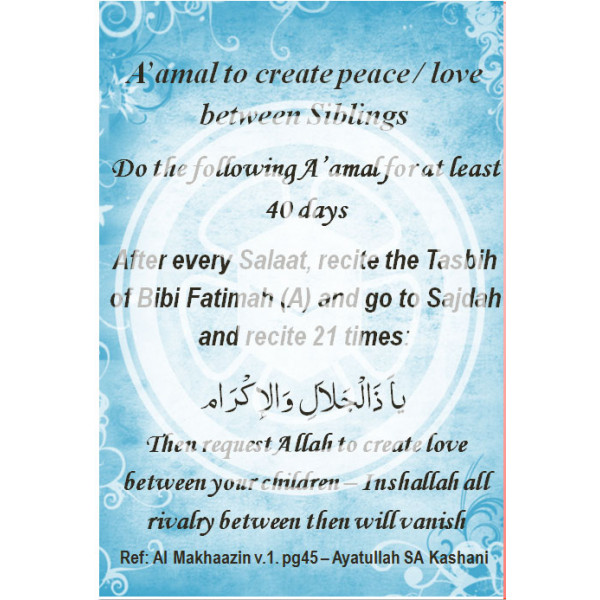 A'amal to create peace / love
between Siblings
Do the following A'amal for at least
40 days
After every Salaat, recite the Tasbih
of Bibi Fatimah (A) and go to Sajdah
and recite 21 times:
ياَ ذَالْجَلاَلِ وَالإِكْرَام
Then request Allah to create love
between your children – Inshallah all
rivalry between then will vanish
Ref: Al Makhaazin v.1. pg45 – Ayatullah SA Kashani